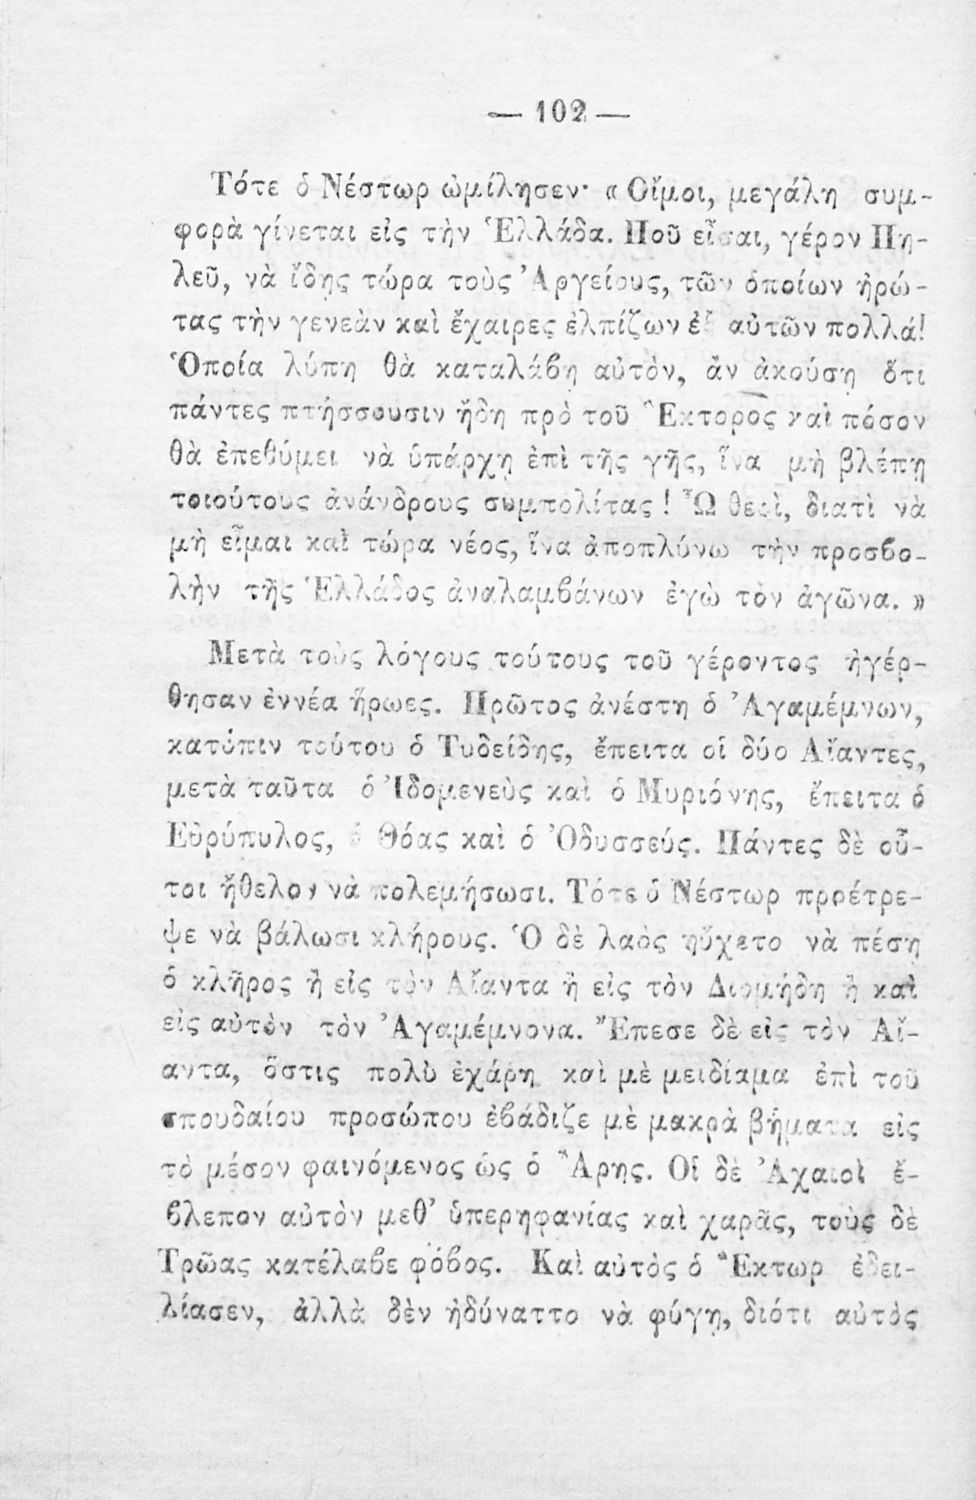 — 102 —
Τότε ὁ Νέστωρ ὡμίλησεν· « Οἴμοι, μεγάλη συμ-
φορὰ γίνεται εἰς τὴν Ἑλλάδα. Ποῦ εἶσαι, γέρον Πη-
λεῦ, νὰ ἴδῃς τώρα τοὺς Ἀργείους, τῶν ὁποίων ἠρώ-
τας τὴν γενεὰν καὶ ἔχαιρες ἐλπίζων ἐξ αὐτῶν πολλά!
Ὁποία λύπη θὰ καταλάβῃ αὐτὸν, ἂν ἀκούσῃ ὅτι
πάντες πτήσσουσιν ἤδη πρὸ τοῦ Ἕκτορος καὶ πόσον
θὰ ἐπεθύμει νὰ ὑπάρχῃ ἐπὶ τῆς γῆς, ἵνα μὴ βλέπῃ
τοιούτους ἀνάνδρους συμπολίτας ! Ὦ θεοὶ, διατὶ νὰ
μὴ εἶμαι καὶ τώρα νέος, ἵνα ἀποπλύνω τὴν προσβο-
λὴν τῆς Ἑλλάδος ἀναλαμβάνων ἐγὼ τὸν ἀγῶνα. »
Μετὰ τοὺς λόγους τούτους τοῦ γέροντος ἠγέρ-
θησαν ἐννέα ἥρωες. Πρῶτος ἀνέστη ὁ Ἀγαμέμνων,
κατόπιν τούτου ὁ Τυδείδης, ἔπειτα οἱ δύο Αἴαντες,
μετὰ ταῦτα ὁ Ἰδομενεὺς καὶ ὁ Μυριόνης, ἔπειτα ὁ
Εὐρύπυλος, ὁ Θόας καὶ ὁ Ὀδυσσεύς. Πάντες δὲ οὗ-
τοι ἤθελον νὰ πολεμήσωσι. Τότε ὁ Νέστωρ προέτρε-
ψε νὰ βάλωσι κλήρους. Ὁ δὲ λαὸς ηὔχετο νὰ πέσῃ
ὁ κλῆρος ἢ εἰς τὸν Αἴαντα ἢ εἰς τὸν Διομήδη ἢ καὶ
εἰς αὐτὸν τὸν Ἀγαμέμνονα. Ἔπεσε δὲ εἰς τὸν Αἴ-
αντα, ὅστις πολὺ ἐχάρη καὶ μὲ μειδίαμα ἐπὶ τοῦ
σπουδαίου προσώπου ἐβάδιζε μὲ μακρὰ βήματα εἰς
τὸ μέσον φαινόμενος ὡς ὁ Ἄρης. Οἱ δὲ Ἀχαιοὶ ἔ-
βλεπον αὐτὸν μεθ’ ὑπερηφανίας καὶ χαρᾶς, τοὺς δὲ
Τρῶας κατέλαβε φόβος. Καὶ αὐτὸς ὁ Ἕκτωρ ἐδει-
λίασεν, ἀλλὰ δὲν ἠδύναττο νὰ φύγῃ, διότι αὐτὸς